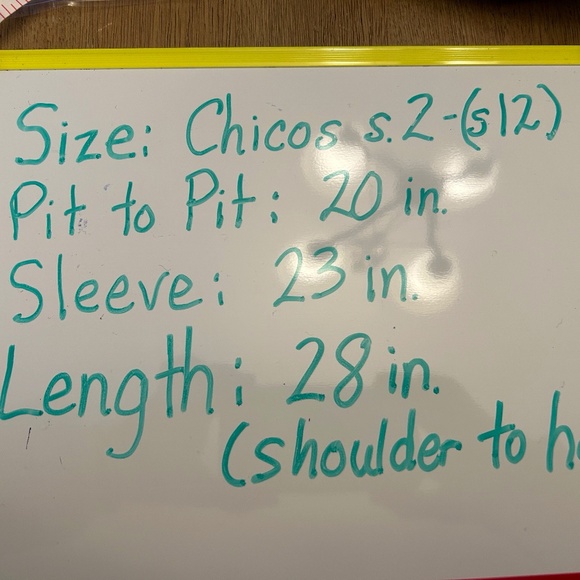 Size: Chicos s.2-(s12)
Pit to Pit: 20 in.
Sleeve: 23 in.
Length: 28 in.
(shoulder to